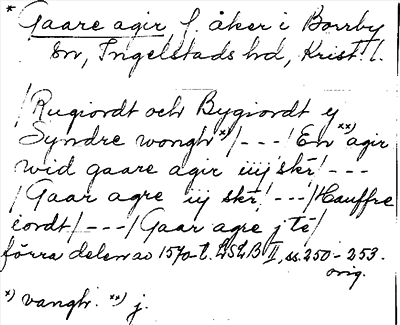 * Gaare agir, f. åker i Borrby
sn, Ingelstads hd, Krist. l.
/Rugiordt och Bygiordt ej
Syndre wongh *)/---/ En **) agir
wid gaare agir iiij skr! ---
/Gaar agre iij skr! ---/Hauffre
iordt/---/Gaar agre j te/
förra delen av 1570-t. LSLB II, ss. 250-253.
orig.
*) vangh. **) j.